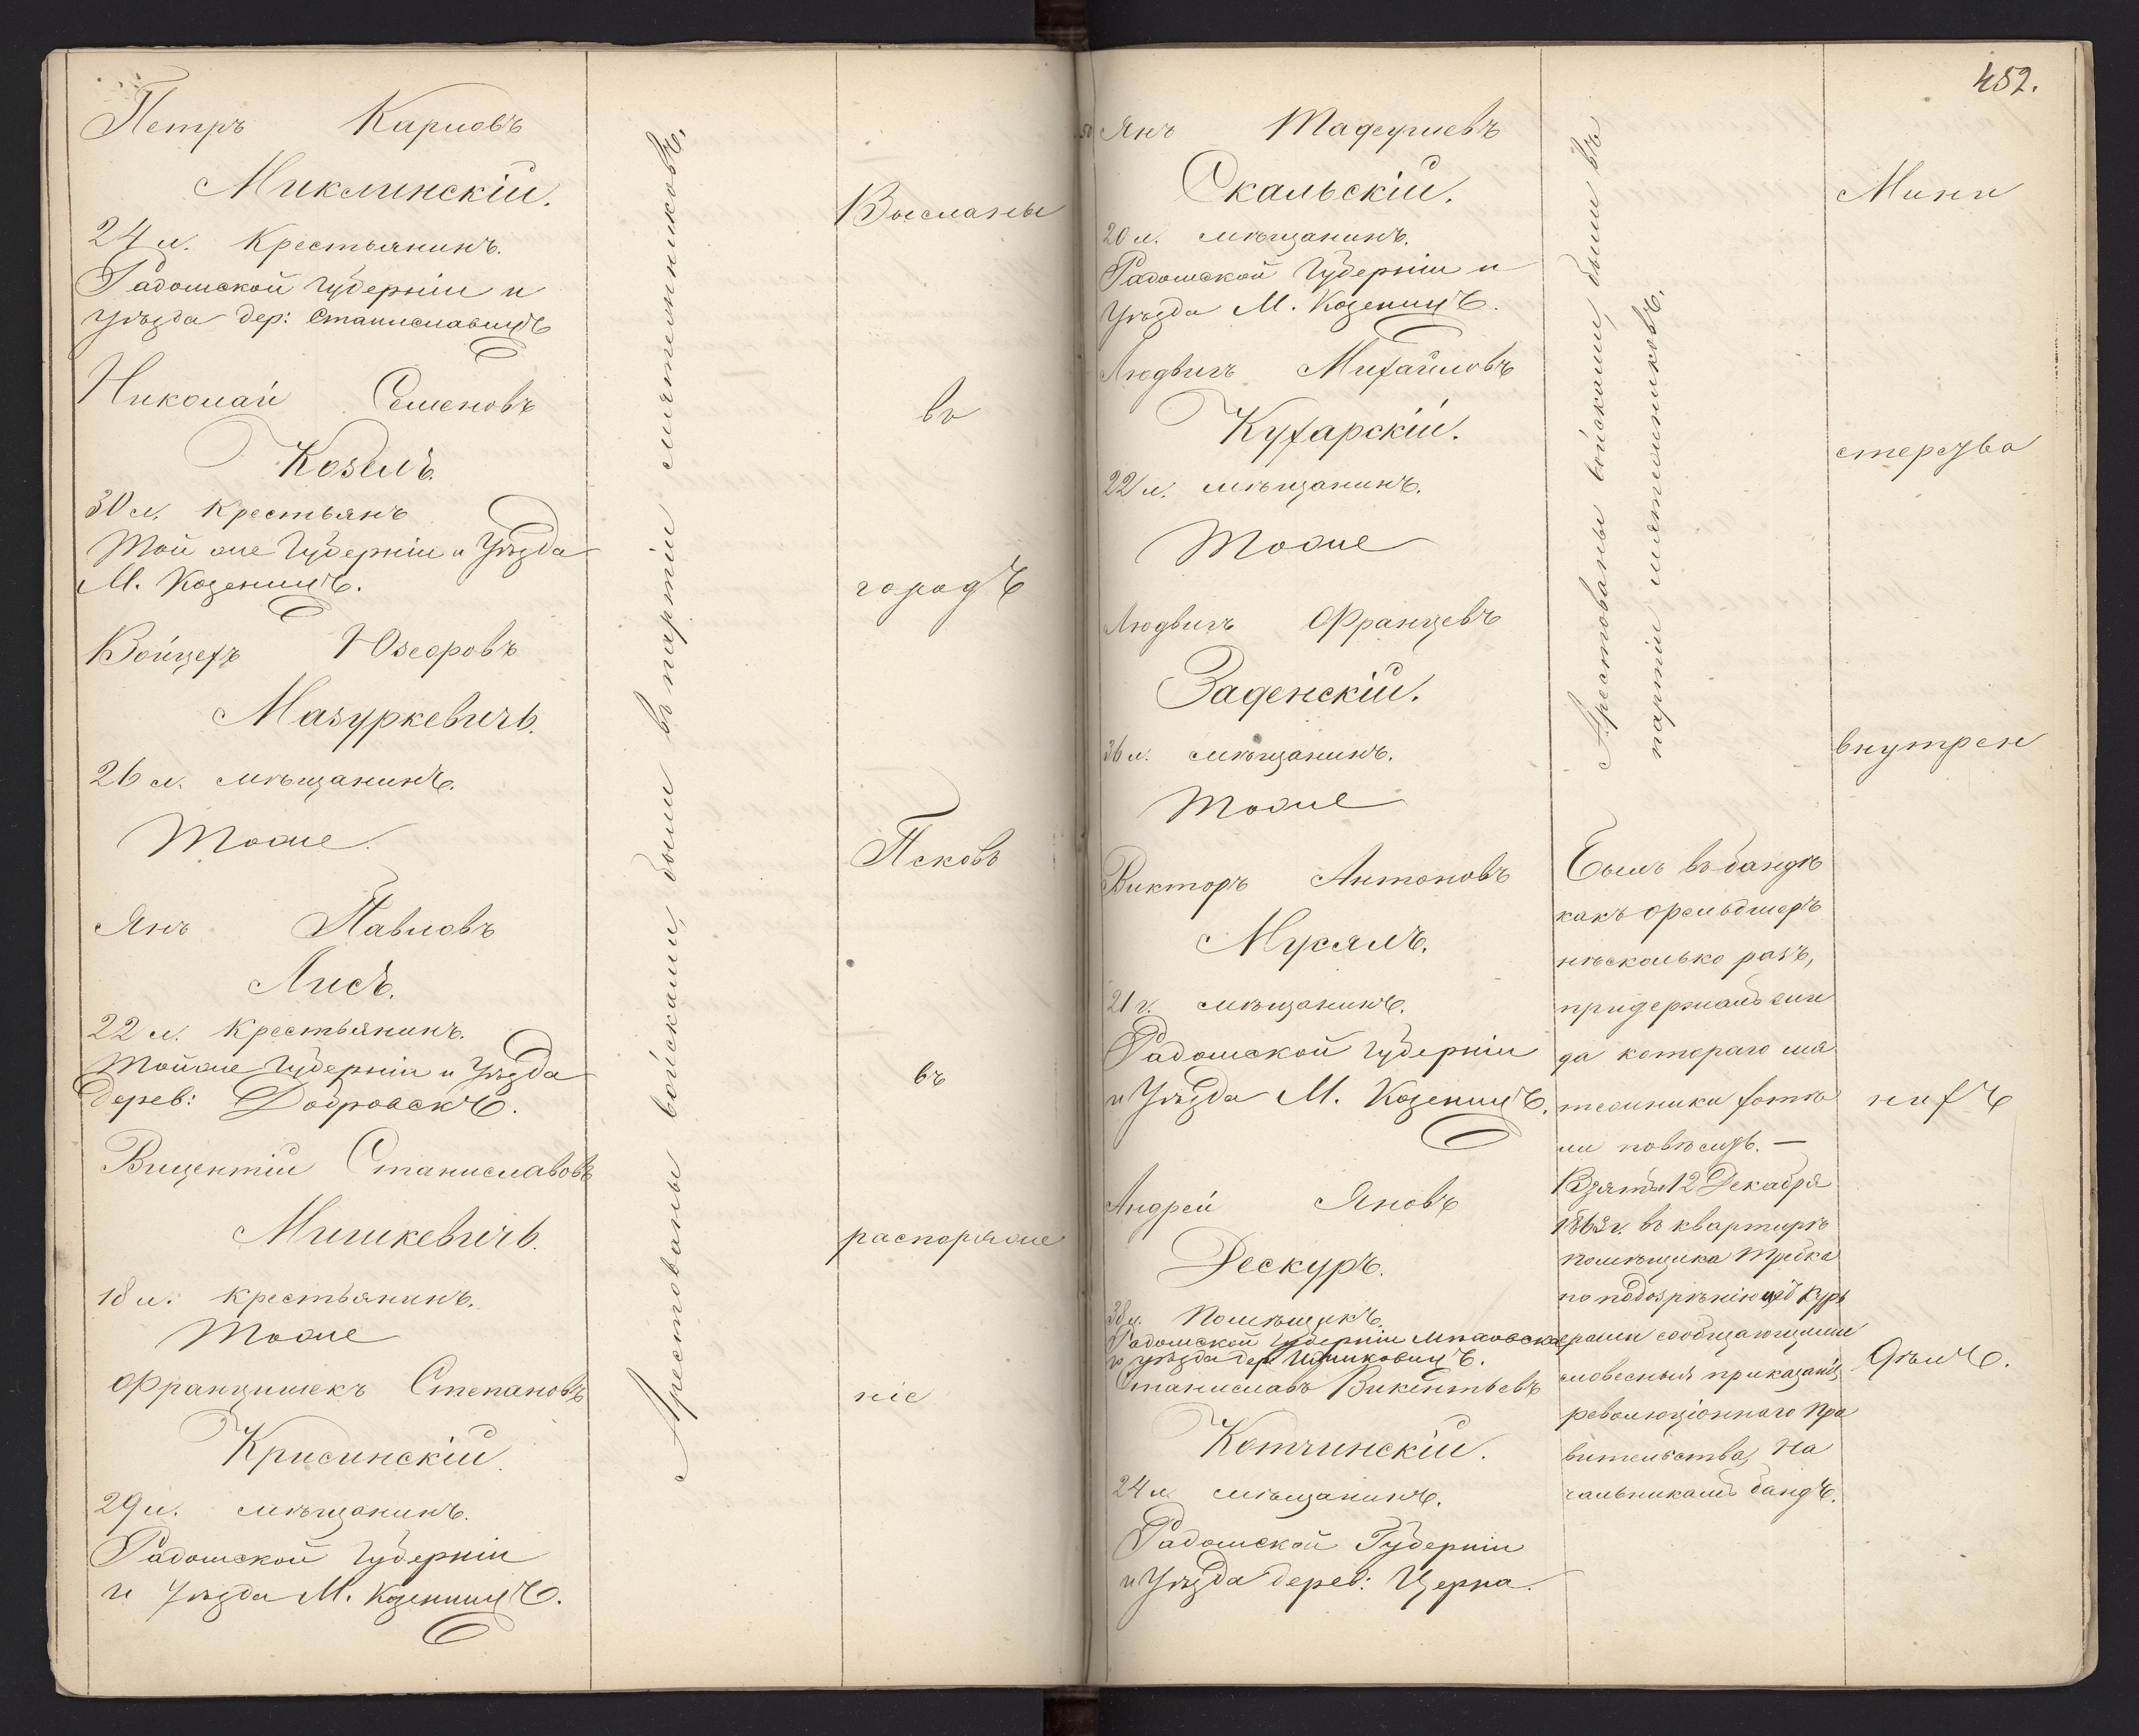 Петръ Карповъ
Миклинскій.
24 л. Крестьянинъ.
Радомской Губерніи и
Уѣзда дер: Станиславицъ
Николай Семеновъ
Козелъ.
30 л. Крестьянъ
Той же Губерніи и Уѣзда
М. Козеницъ.
Войцехъ Юзефовъ
Мазуркевичъ.
26 л. мѣщанинъ.
Тоже.
Янъ Павловъ
Лисъ.
22 л. Крестьянинъ.
Тойже Губерніи и Уѣзда
Дерев:
Вицентій Станиславовъ
Мишкевичъ.
18 л. крестьянинъ.
Тоже
Францишекъ Степановъ
Крисинскій.
29 л. мѣщанинъ.
Радомской Губерніи
и Уѣзда М. Козеницъ.
Арестованы войсками, были въ партіи мятежниковъ.
Высланы
въ
городъ
Псковъ
въ
распоряже
ніе
452.
Янъ Тадеушевъ
Скальскій.
20 л. мѣщанинъ.
Радомской Губерніи и
Уѣзда М. Козеницъ.
Людвигъ Михайловъ
Кухарскій.
22 л. мѣщанинъ.
Тоже
Людвигъ Францевъ
Заденскій.
36 л. мѣщанинъ.
Тоже
Викторъ Антоновъ
Мусялъ.
21 г. мѣщанинъ.
Радомской Губерніи
и Уѣзда М. Козеницъ.
Андрей Яновъ
Дескуръ.
38 л. Помѣщикъ.
Радомской Губерніи
уѣзда дер.
Станиславъ Викентьевъ
Котчинскій.
24 л мѣщанинъ.
Радомской Губерніи
и Уѣзда дерев: Церна.
Арестованы войсками, были въ
партіи мятежниковъ.
Былъ въ бандѣ
какъ фельдшеръ
нѣсколько разъ,
придержалъ
да котораго мя
тежники хотѣ
ли повѣсить. —
Взятъ 12 Декабря
1863 г. въ квартирѣ
помѣщика
по подозрѣнію съ курь
ерами сообщающими
словесныя приказанія
революціоннаго Пра
вительства, На
чальникамъ бандъ.
Мини
стерства
внутрен
нихъ
дѣлъ.